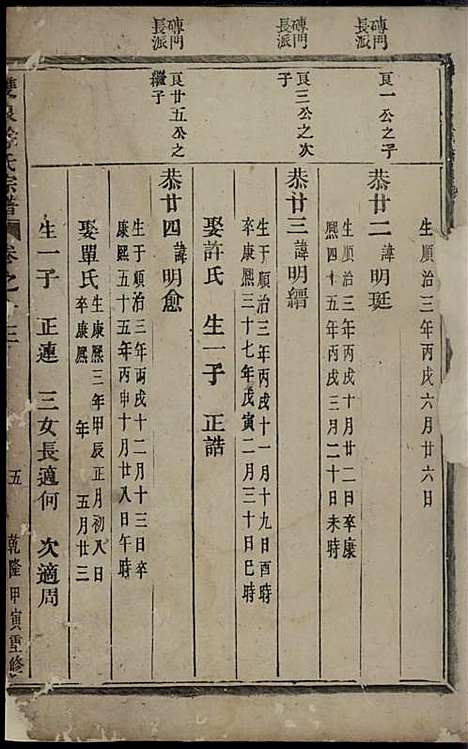 磚門長派
磚門長派
磚門長派
生順治三年丙戌六月廿六日
良一公之子
恭廿二 諱明珽
生順治三年丙戌十月廿二日卒康
熙四十五年丙戌三月二十日未時
良三公之次子
恭廿三 諱明縉
生于順治三年丙戌十一月十九日酉時
卒康熙三十七年戊寅二月三十日巳時
娶許氏 生一子 正誥
良廿五公之繼子
恭廿四 諱明愈
生于順治三年丙戌十二月十三日卒
康熙五十五年丙申十月廿八日午時
娶單氏 生康熙三年甲辰正月初八日
卒康熙 年 五月廿三
生一子 正連 三女長適何 次適周
氏宗譜 卷之十三 五 乾隆甲寅重修